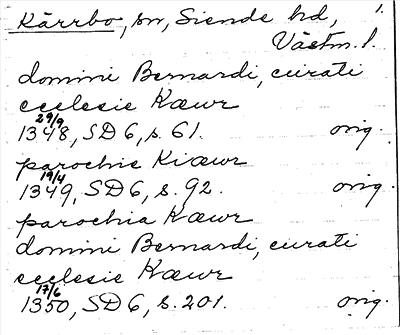 Kärrbo, sn, Siende hd, 1.
Västm. l.
domini Bernardi, curati
ecclesie Kœwr
29/9
1348, SD 6, s. 61. orig.
parochie Kiœwr
19/4
1349, SD 6, s. 92. orig.
parochia Kœwr
domini Bernardi, curati
ecclesie Kœwr
17/6
1350, SD 6, s. 201. orig.